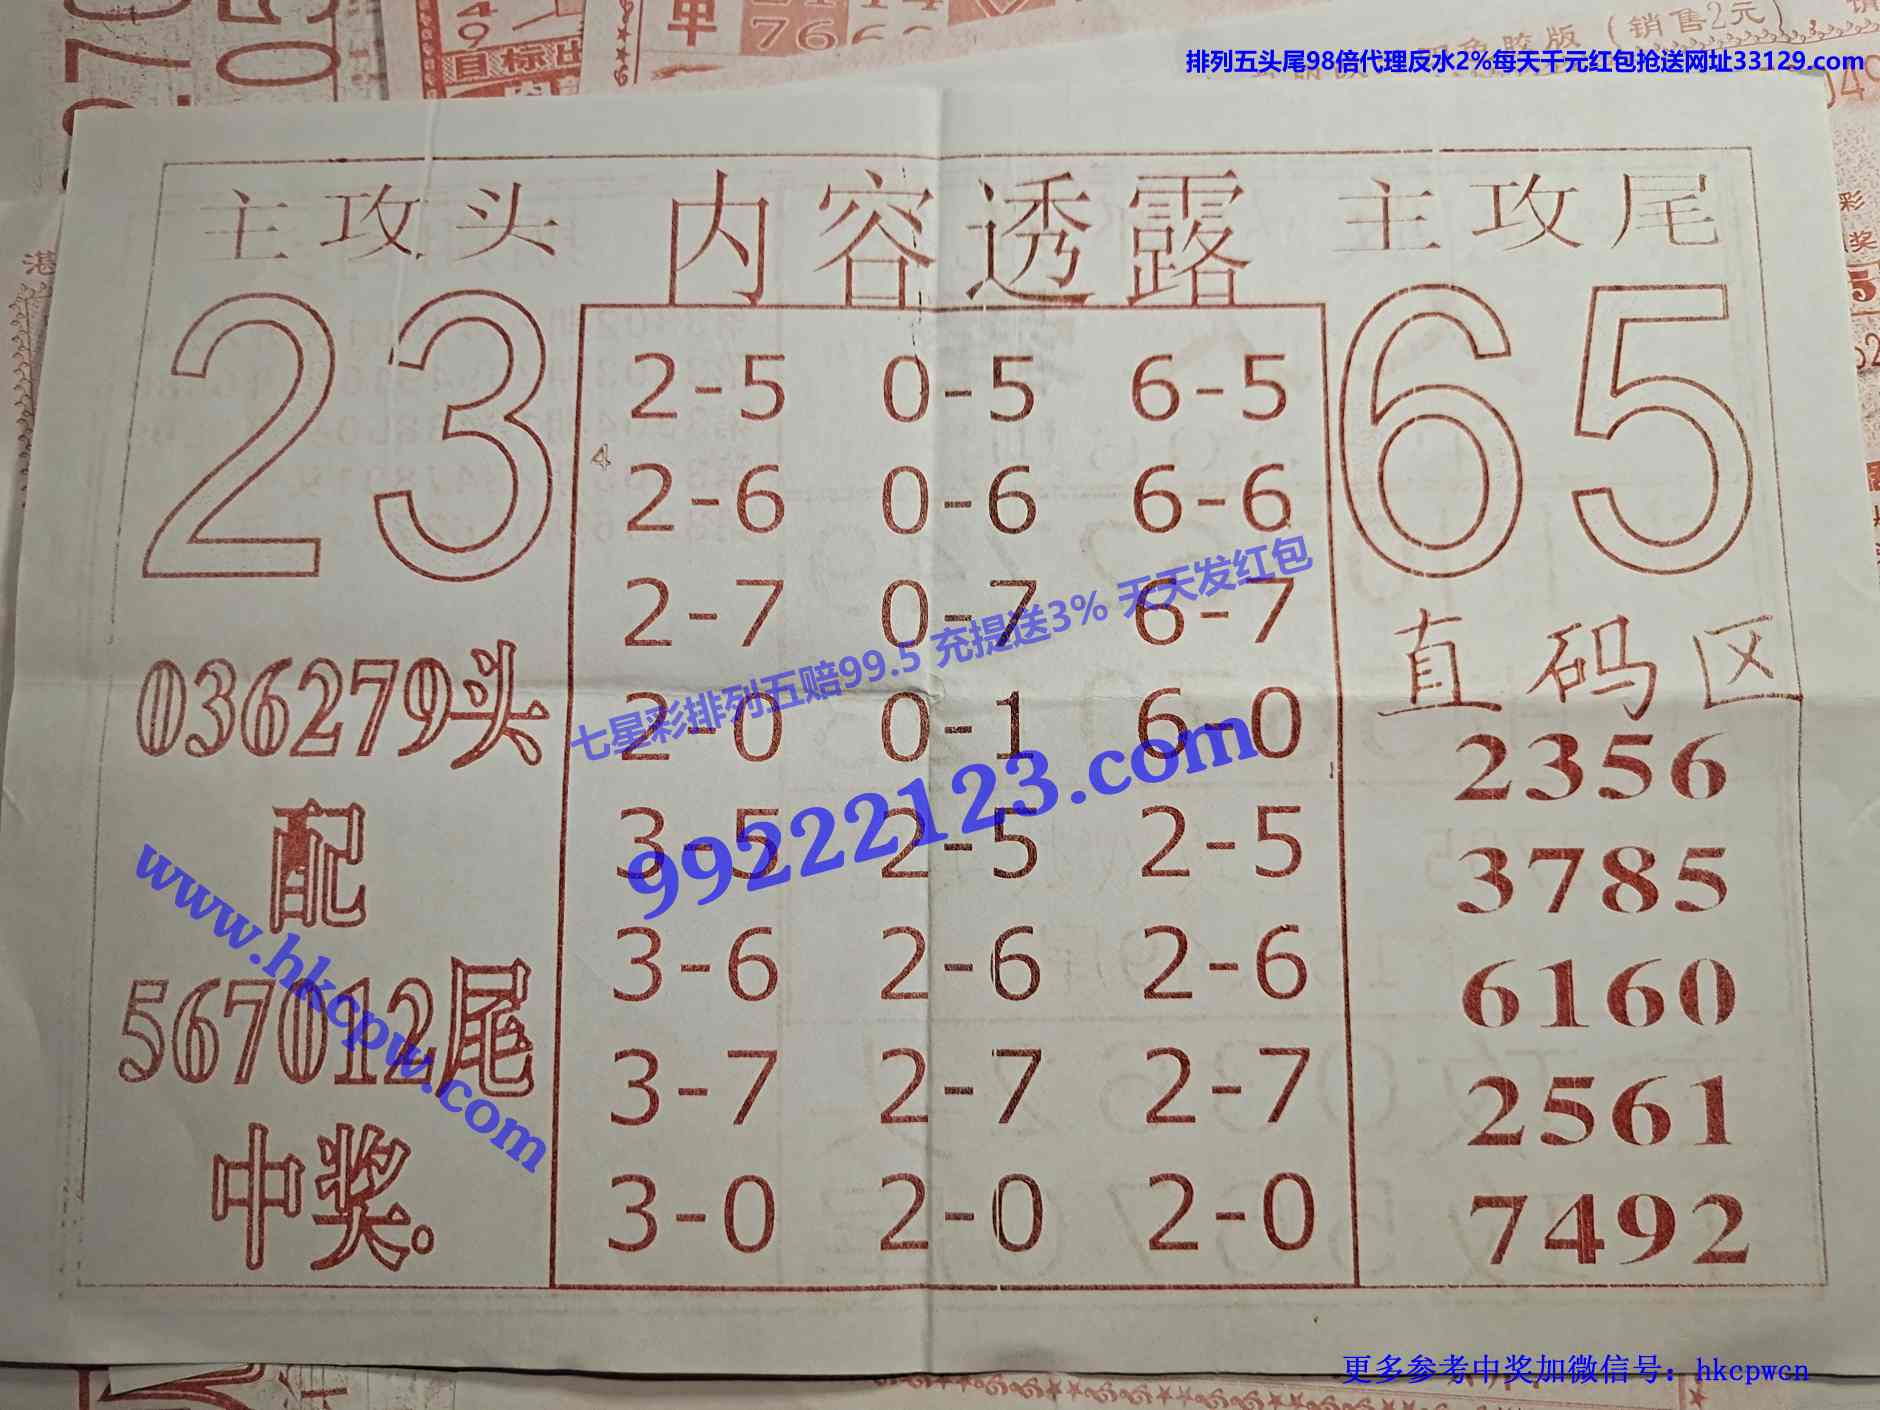 排列五头尾98倍代理反水2%每天千元红包抢送网址33129.com
主攻头 内容透露 主攻尾
23
65
2-5 0-5 6-5
2-6 0-6 6-6
2-7 0-7 6-7
2-0 0-1 6-0
3-5 2-5 2-5
3-6 2-6 2-6
3-7 2-7 2-7
3-0 2-0 2-0
4
036279头
配
567012尾
中奖.
直码区
2356
3785
6160
2561
7492
七星彩排列五赔99.5 充提送3% 天天发红包
99222123.com
www.hkcpw.com
更多参考中奖加微信号：hkcpwcn
目标出
单
(销售2元)